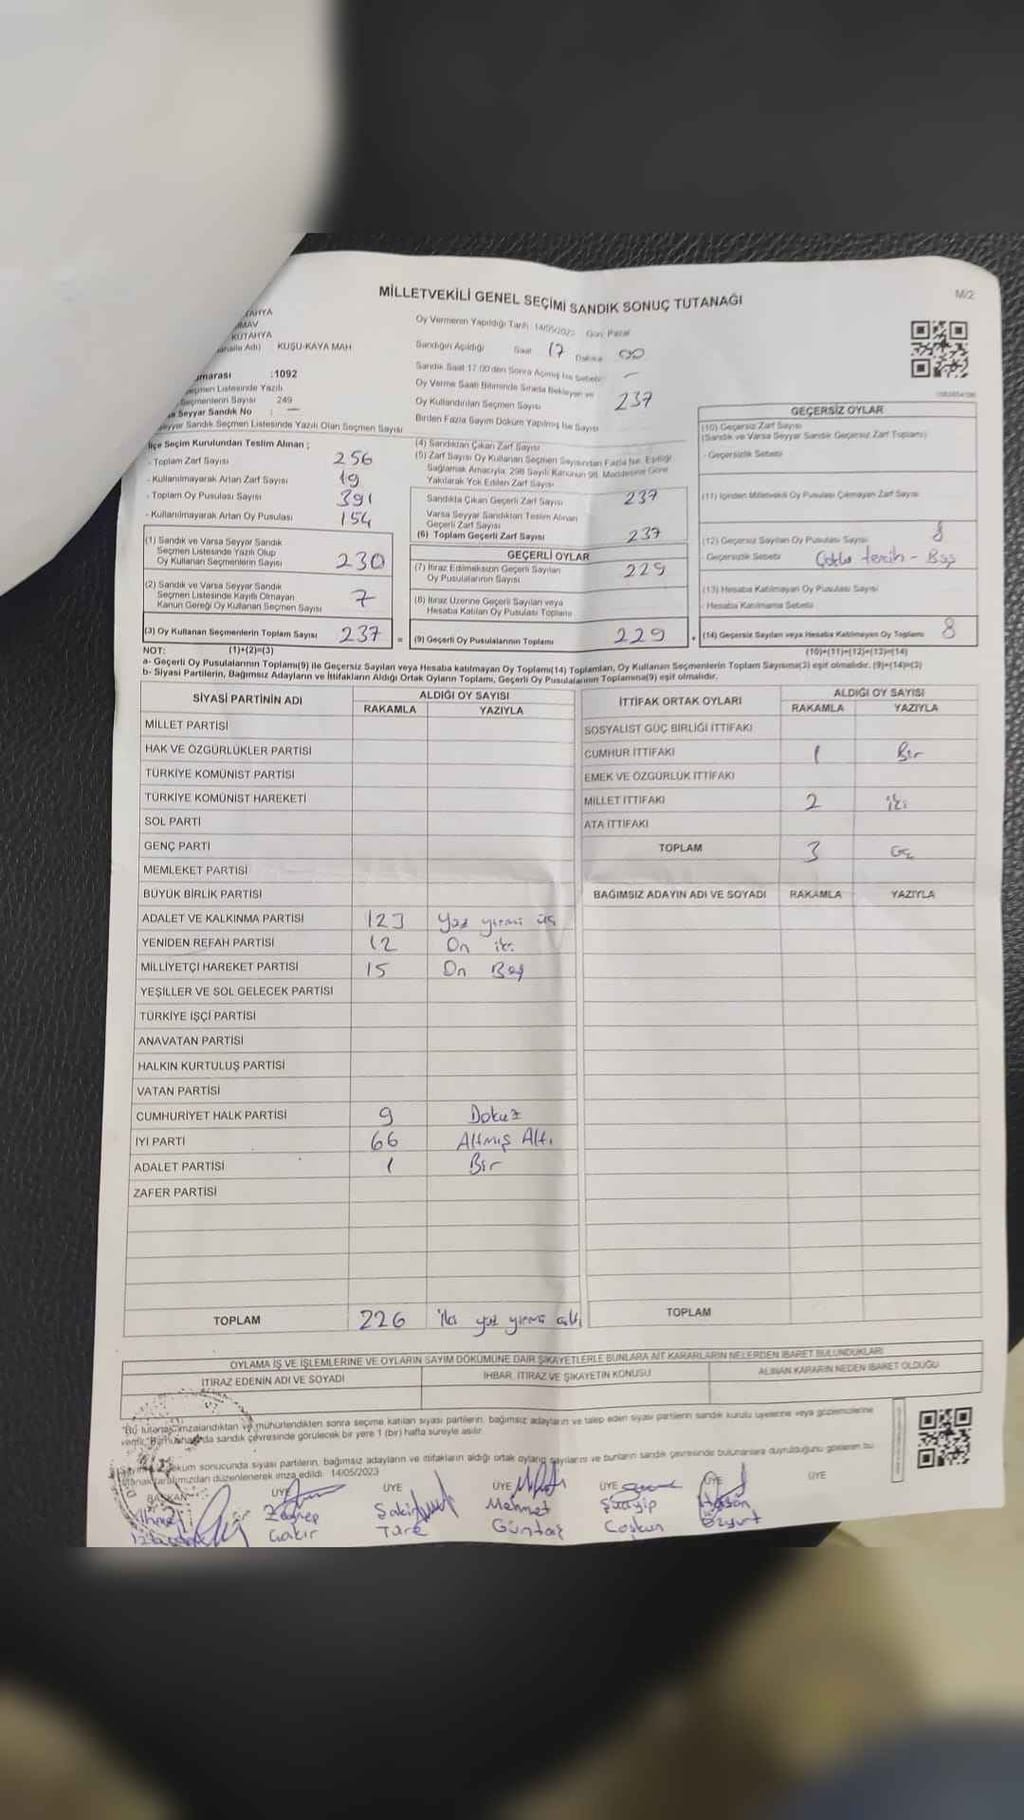 MİLLETVEKİLİ GENEL SEÇİMİ SANDIK SONUÇ TUTANAĞI
M/2
KÜTAHYA
KUŞU-KAYA MAH
:1092
Seçmen Listesinde Yazılı
Seçmenlerin Sayısı 249
Seyyar Sandık No : —
Seyyar Sandık Seçmen Listesinde Yazılı Olan Seçmen Sayısı
Oy Vermenin Yapıldığı Tarih : 14/05/2023 Gün: Pazar
Sandığın Açıldığı Saat 17 Dakika 00
Sandık Saat 17.00'den Sonra Açılmış İse Sebebi: —
Oy Verme Saati Bitiminde Sırada Bekleyen ve
Oy Kullandırılan Seçmen Sayısı 237
Birden Fazla Sayım Döküm Yapılmış İse Sayısı
İlçe Seçim Kurulundan Teslim Alınan ;
- Toplam Zarf Sayısı 256
- Kullanılmayarak Artan Zarf Sayısı 19
- Toplam Oy Pusulası Sayısı 391
- Kullanılmayarak Artan Oy Pusulası 154
(1) Sandık ve Varsa Seyyar Sandık
Seçmen Listesinde Yazılı Olup
Oy Kullanan Seçmenlerin Sayısı 230
(2) Sandık ve Varsa Seyyar Sandık
Seçmen Listesinde Kayıtlı Olmayan
Kanun Gereği Oy Kullanan Seçmen Sayısı 7
(3) Oy Kullanan Seçmenlerin Toplam Sayısı 237 =
(4) Sandıktan Çıkan Zarf Sayısı
(5) Zarf Sayısı Oy Kullanan Seçmen Sayısından Fazla İse, Eşitliği
Sağlamak Amacıyla, 298 Sayılı Kanunun 98. Maddesine Göre
Yakılarak Yok Edilen Zarf Sayısı
Sandıkta Çıkan Geçerli Zarf Sayısı 237
Varsa Seyyar Sandıktan Teslim Alınan
Geçerli Zarf Sayısı
(6) Toplam Geçerli Zarf Sayısı 237
GEÇERLİ OYLAR
(7) İtiraz Edilmeksizin Geçerli Sayılan
Oy Pusulalarının Sayısı 229
(8) İtiraz Üzerine Geçerli Sayılan veya
Hesaba Katılan Oy Pusulası Toplamı
(9) Geçerli Oy Pusulalarının Toplamı 229 +
GEÇERSİZ OYLAR
(10) Geçersiz Zarf Sayısı
(Sandık ve Varsa Seyyar Sandık Geçersiz Zarf Toplamı)
- Geçersizlik Sebebi
(11) İçinden Milletvekili Oy Pusulası Çıkmayan Zarf Sayısı
(12) Geçersiz Sayılan Oy Pusulası Sayısı 8
Geçersizlik Sebebi
(13) Hesaba Katılmayan Oy Pusulası Sayısı
- Hesaba Katılmama Sebebi
(14) Geçersiz Sayılan veya Hesaba Katılmayan Oy Toplamı 8
NOT: (1)+(2)=(3) (10)+(11)+(12)+(13)=(14)
a- Geçerli Oy Pusulalarının Toplamı(9) ile Geçersiz Sayılan veya Hesaba katılmayan Oy Toplamı(14) Toplamları, Oy Kullanan Seçmenlerin Toplam Sayısına(3) eşit olmalıdır. (9)+(14)=(3)
b- Siyasi Partilerin, Bağımsız Adayların ve İttifakların Aldığı Ortak Oyların Toplamı, Geçerli Oy Pusulalarının Toplamına(9) eşit olmalıdır.
SİYASİ PARTİNİN ADI ALDIĞI OY SAYISI
RAKAMLA YAZIYLA
MİLLET PARTİSİ
HAK VE ÖZGÜRLÜKLER PARTİSİ
TÜRKİYE KOMÜNİST PARTİSİ
TÜRKİYE KOMÜNİST HAREKETİ
SOL PARTİ
GENÇ PARTİ
MEMLEKET PARTİSİ
BÜYÜK BİRLİK PARTİSİ
ADALET VE KALKINMA PARTİSİ 123 Yüz yirmi üç
YENİDEN REFAH PARTİSİ 12 On iki
MİLLİYETÇİ HAREKET PARTİSİ 15 On Beş
YEŞİLLER VE SOL GELECEK PARTİSİ
TÜRKİYE İŞÇİ PARTİSİ
ANAVATAN PARTİSİ
HALKIN KURTULUŞ PARTİSİ
VATAN PARTİSİ
CUMHURİYET HALK PARTİSİ 9 Dokuz
İYİ PARTİ 66 Altmış Altı
ADALET PARTİSİ 1 Bir
ZAFER PARTİSİ
TOPLAM 226 iki yüz yirmi altı
İTTİFAK ORTAK OYLARI ALDIĞI OY SAYISI
RAKAMLA YAZIYLA
SOSYALİST GÜÇ BİRLİĞİ İTTİFAKI
CUMHUR İTTİFAKI 1 Bir
EMEK VE ÖZGÜRLÜK İTTİFAKI
MİLLET İTTİFAKI 2 iki
ATA İTTİFAKI
TOPLAM 3 Üç
BAĞIMSIZ ADAYIN ADI VE SOYADI RAKAMLA YAZIYLA
TOPLAM
OYLAMA İŞ VE İŞLEMLERİNE VE OYLARIN SAYIM DÖKÜMÜNE DAİR ŞİKAYETLERLE BUNLARA AİT KARARLARIN NELERDEN İBARET BULUNDUKLARI
İTİRAZ EDENİN ADI VE SOYADI İHBAR, İTİRAZ VE ŞİKAYETİN KONUSU ALINAN KARARIN NEDEN İBARET OLDUĞU
"Bu tutanak imzalandıktan ve mühürlendikten sonra seçime katılan siyasi partilerin, bağımsız adayların ve talep eden siyasi partilerin sandık kurulu üyelerine veya gözlemcilerine
verilir." sandık çevresinde görülecek bir yere 1 (bir) hafta süreyle asılır.
döküm sonucunda siyasi partilerin, bağımsız adayların ve ittifakların aldığı ortak oyların sayılarını ve bunların sandık çevresinde bulunanlara duyurulduğunu gösteren bu
tutanak tarafımızdan düzenlenerek imza edildi. 14/05/2023
BAŞKAN ÜYE ÜYE ÜYE ÜYE ÜYE ÜYE
Zeynep Şakir Mehmet Şuayip Hasan
Çakır Türe Güntaş Coşkun Özyurt